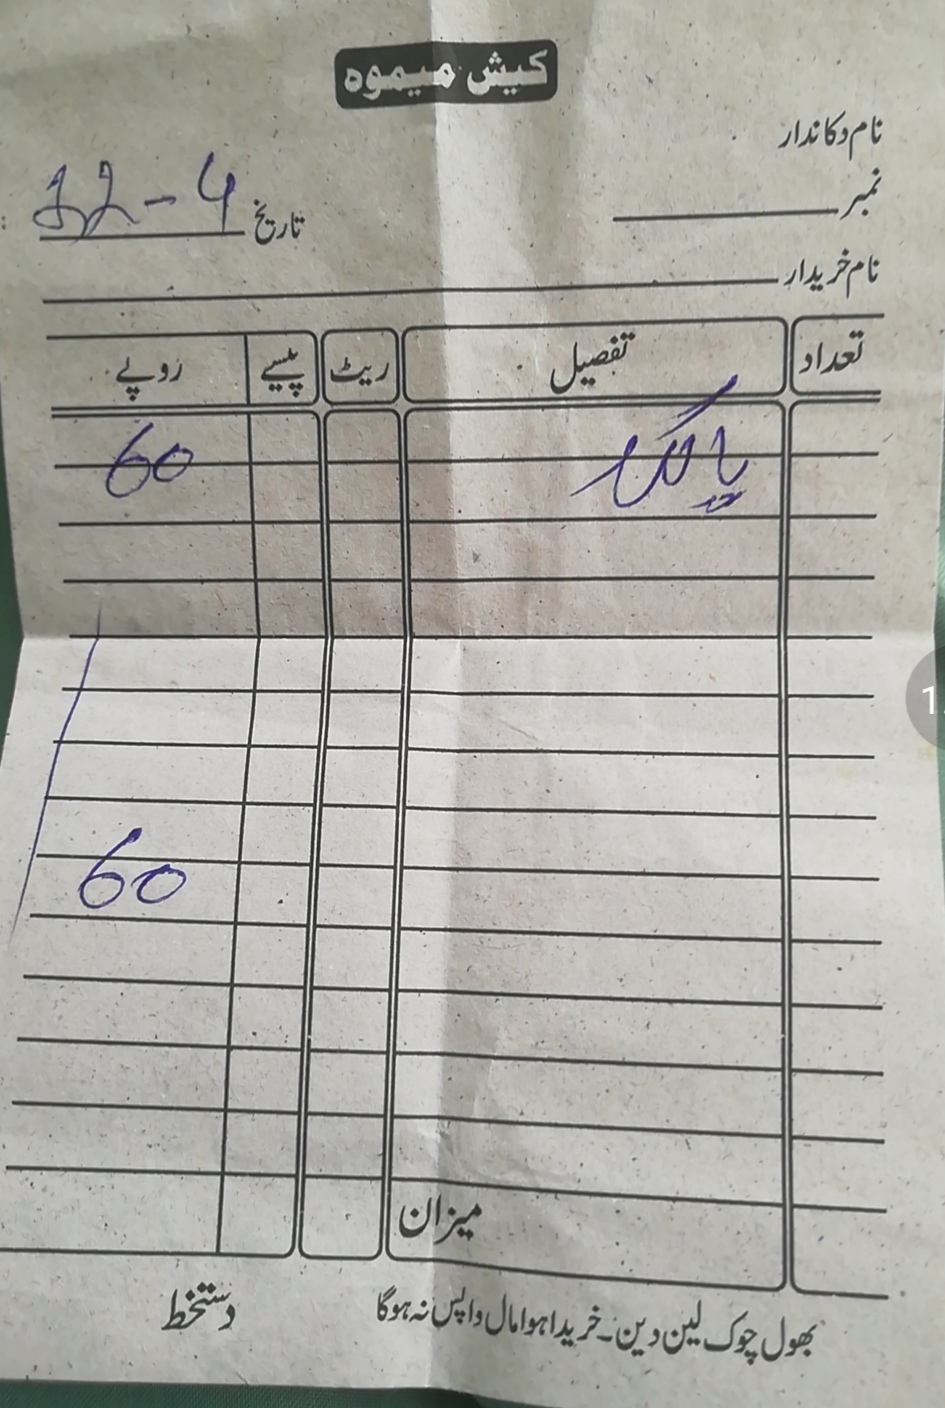 کیش میمو
نام دکاندار
نمبر
تاریخ 12-4
نام خریدار
تعداد تفصیل ریٹ پیسے روپے
پالک 60
60
میزان
بھول چوک لین دین۔ خریدا ہوا مال واپس نہ ہوگا
دستخط
1